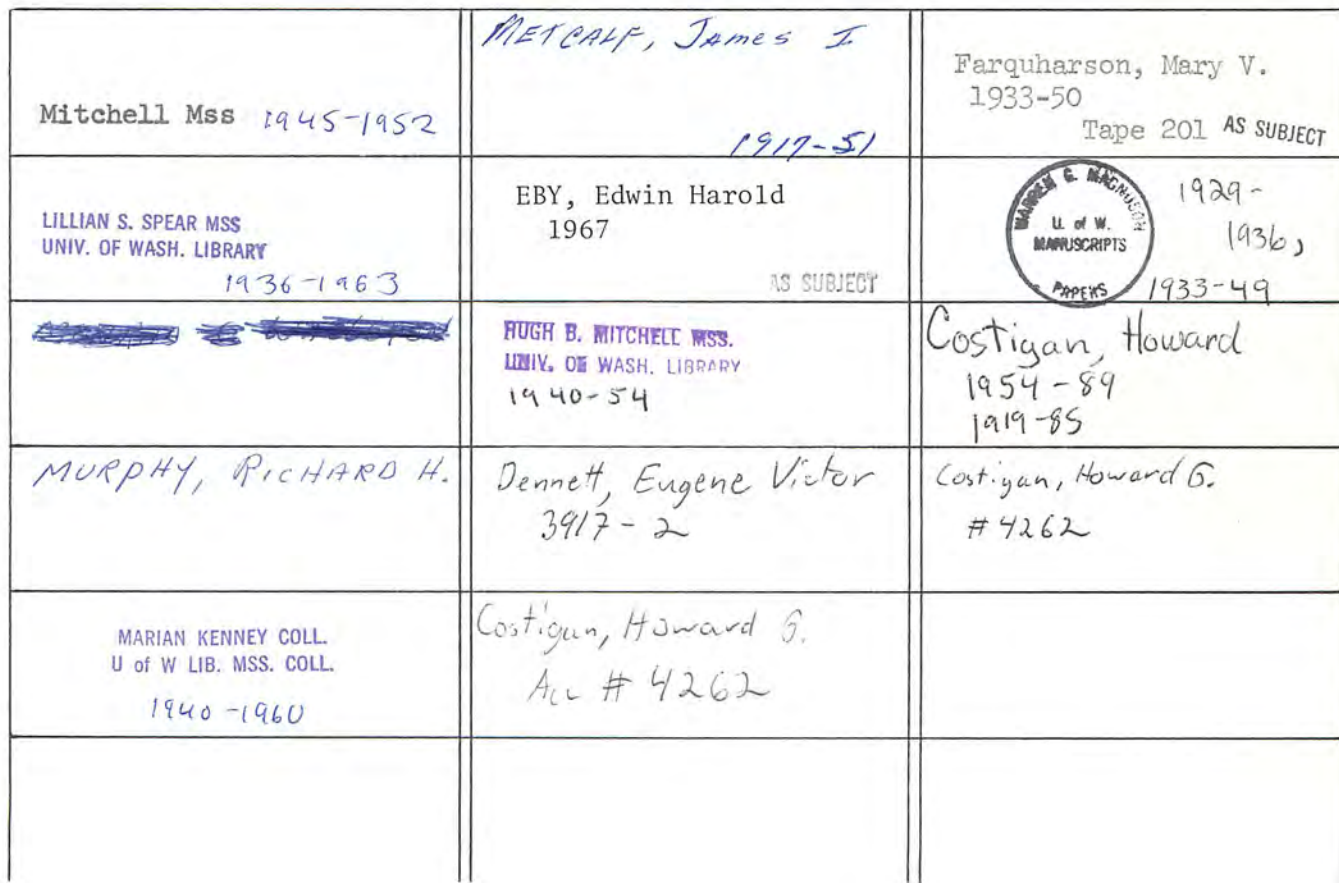 Mitchell Mss 1945-1952
METCALF, James I
1917-51
Farquharson, Mary V.
1933-50
Tape 201 AS SUBJECT
LILLIAN S. SPEAR MSS
UNIV. OF WASH. LIBRARY
1936-1963
EBY, Edwin Harold
1967
AS SUBJECT
WARREN G. MAGNUSON
U. of W.
MANUSCRIPTS
PAPERS
1929-
1936,
1933-49
HUGH B. MITCHELL MSS.
UNIV. OF WASH. LIBRARY
1940-54
Costigan, Howard
1954-89
1919-85
MURPHY, RICHARD H.
Dennett, Eugene Victor
3917-2
Costigan, Howard G.
#4262
MARIAN KENNEY COLL.
U of W LIB. MSS. COLL.
1940-1960
Costigan, Howard G.
Acc # 4262